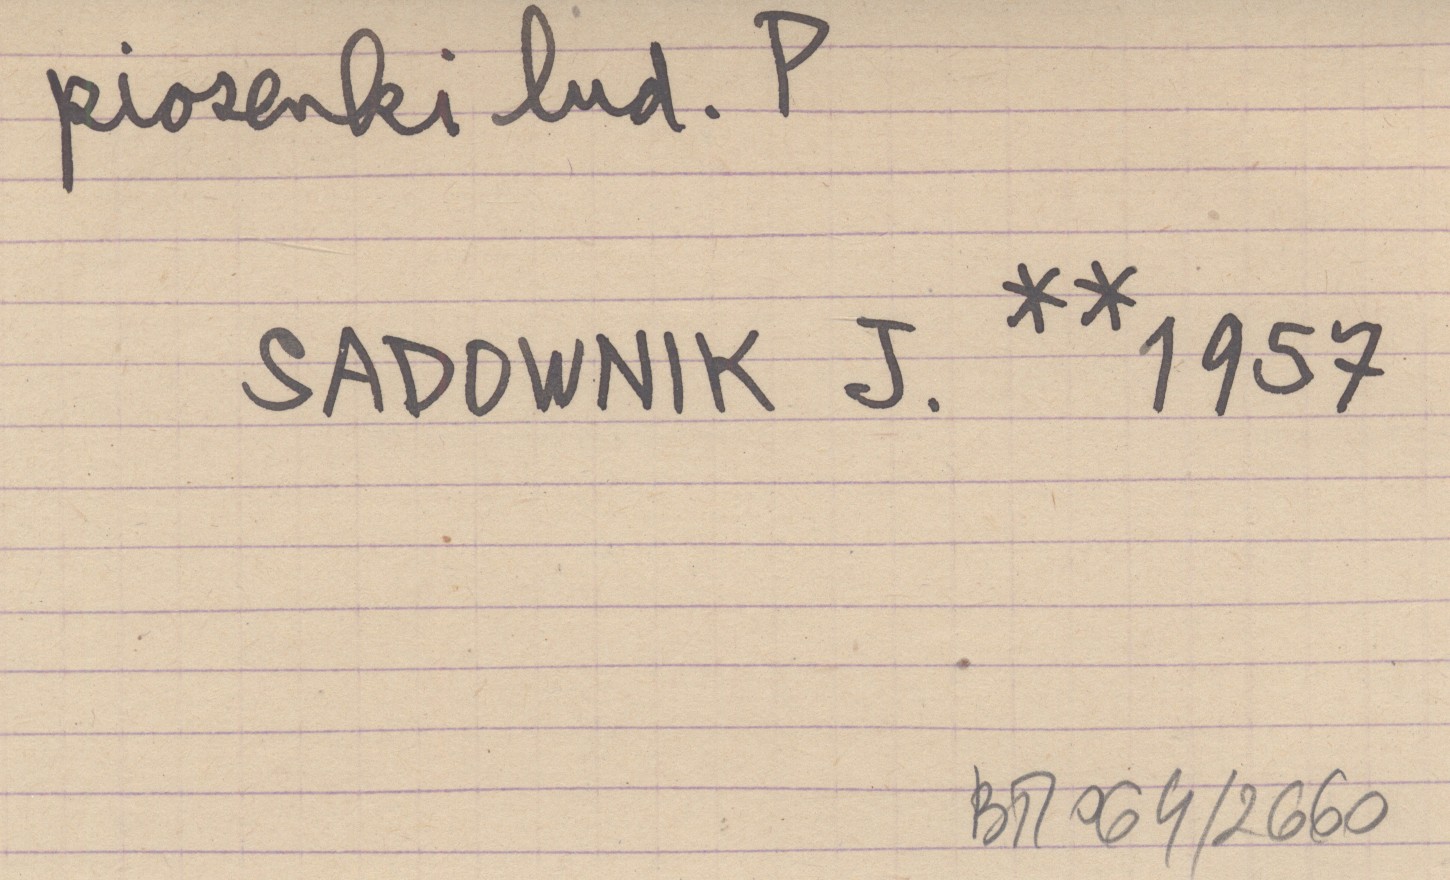 piosenki lud. P
SADOWNIK J. **1957
ВП 064/2660